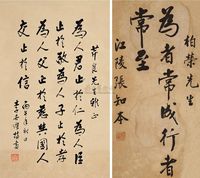 芹晨先生雅正
為人君止於仁為人臣
止於敬為人子止於孝
為人父止於慈與國人
交止於信
柏榮先生
為者常成行者
常至
江陵張知本